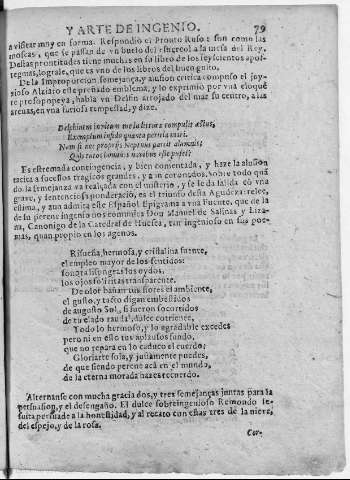 Y ARTE DE INGENIO. 79
a vistar muy en forma. Respondiò el Pronto Rufo: son como las
moscas, que se passan de vn buelo del estiercol a la mesa del Rey.
Destas prontitudes tiene muchas en su libro de los seyscientos apof-
tegmas, lograle, que es vno de los libros del buen gusto.
De la Improporcion semejança, y alusion critica compuso el joy-
nioso Alciato este preñado emblema, y lo exprimiò por vna eloquẽ
te prosopopeya, habla vn Delfin arrojado del mar su centro, a las
arenas, en vna furiosa tempestad, y dize.
Delphinem invitum me in littora compulit æstus,
Exemplum infido quanta pericla mari.
Nam si nec proprijs Neptunus parcit alumnis;
Quis tutos homines navibus esse putet?
Es estremada contingencia, y bien comentada, y haze la alusion
tacita a sucessos tragicos grandes, y aun coronados. Sobre todo quã
do la semejança va realçada con el misterio, y se le da salida cõ vna
grave, y sentenciosa ponderaciò, es el triunfo desta Agudeza reле-
Epigrama a vna Fuente, que de la
de su perene ingenio nos comunica Don Manuel de Salinas y Liza-
na, Canonigo de la Catedral de Huesca, tan ingenioso en sus poe-
mas, quan proprio en los agenos.
Risueña, hermosa, y cristalina fuente,
el empleo mayor de los sentidos:
sonora lisongeas los oydos,
los ojos solicitas transparente.
De olor bañan tus flores el ambiente,
el gusto, y tacto digan embestidos
de augusto Sol, si fueron socorridos
de tu elado raudal, dulce corriente.
Todo lo hermoso, y lo agradable excedes
pero ni en esso tus aplausos fundo,
que no repara en lo caduco el cuerdo;
Gloriarte sola, y justamente puedes,
de que siendo perene acà en el mundo,
de la eterna morada hazes recuerdo.
Alternanse con mucha gracia dos, y tres semejanças juntas para la
persuasion, y el desengaño. El dulce sobreingenioso Remondo Ie-
suita persuade a la honestidad, y al recato con estas tres de la nieve,
del espejo, y de la rosa.
Cor-